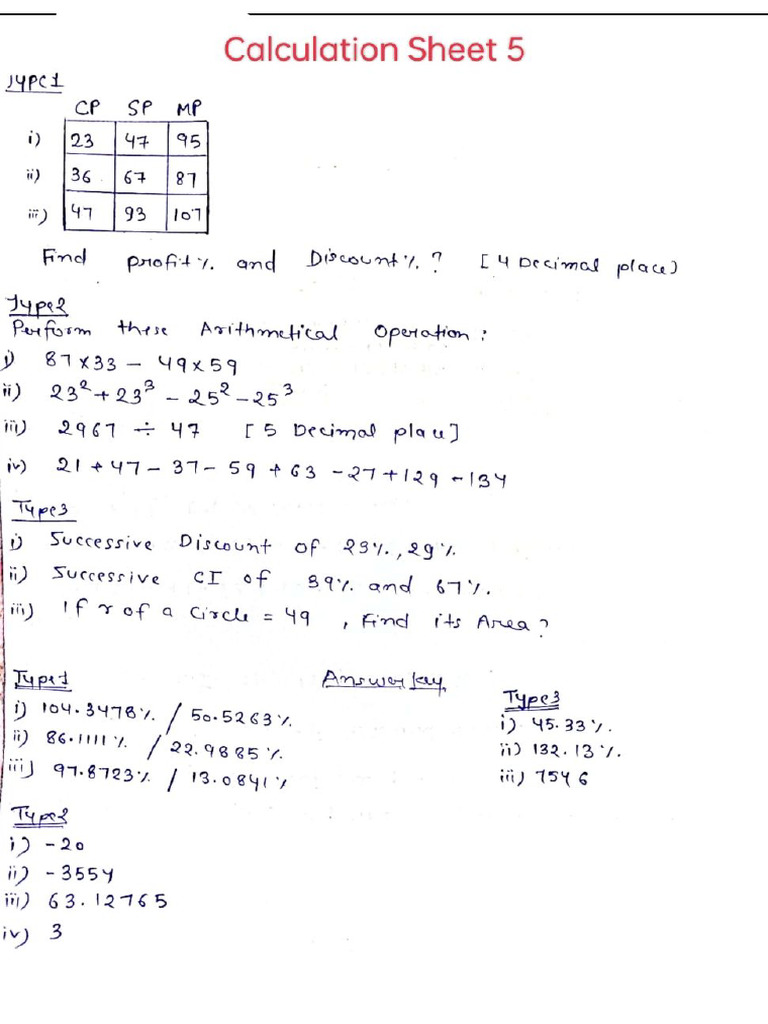 Calculation Sheet 5
Type1
CP SP MP
i) 23 47 95
ii) 36 67 87
iii) 47 93 107
Find profit% and Discount%? [4 Decimal place)
Type2
Perform these Arithmetical Operation:
i) 87×33 - 49×59
ii) 23²+23³ - 25² - 25³
iii) 2967 ÷ 47 [5 Decimal place]
iv) 21 + 47 - 37 - 59 + 63 - 27 + 129 - 134
Type3
i) Successive Discount of 23%, 29%.
ii) Successive CI of 39% and 67%.
iii) If r of a circle = 49, Find its Area?
Type1 Answer key
i) 104.3478% / 50.5263%
ii) 86.1111% / 22.9885%
iii) 97.8723% / 13.0841%
Type3
i) 45.33%.
ii) 132.13%.
iii) 7546
Type2
i) -20
ii) -3554
iii) 63.12765
iv) 3